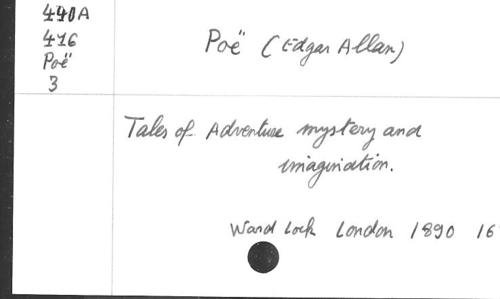 440A
416
Poë
3
Poë (Edgar Allan)
Tales of Adventure mystery and
imagination.
Ward Lock London 1890 16